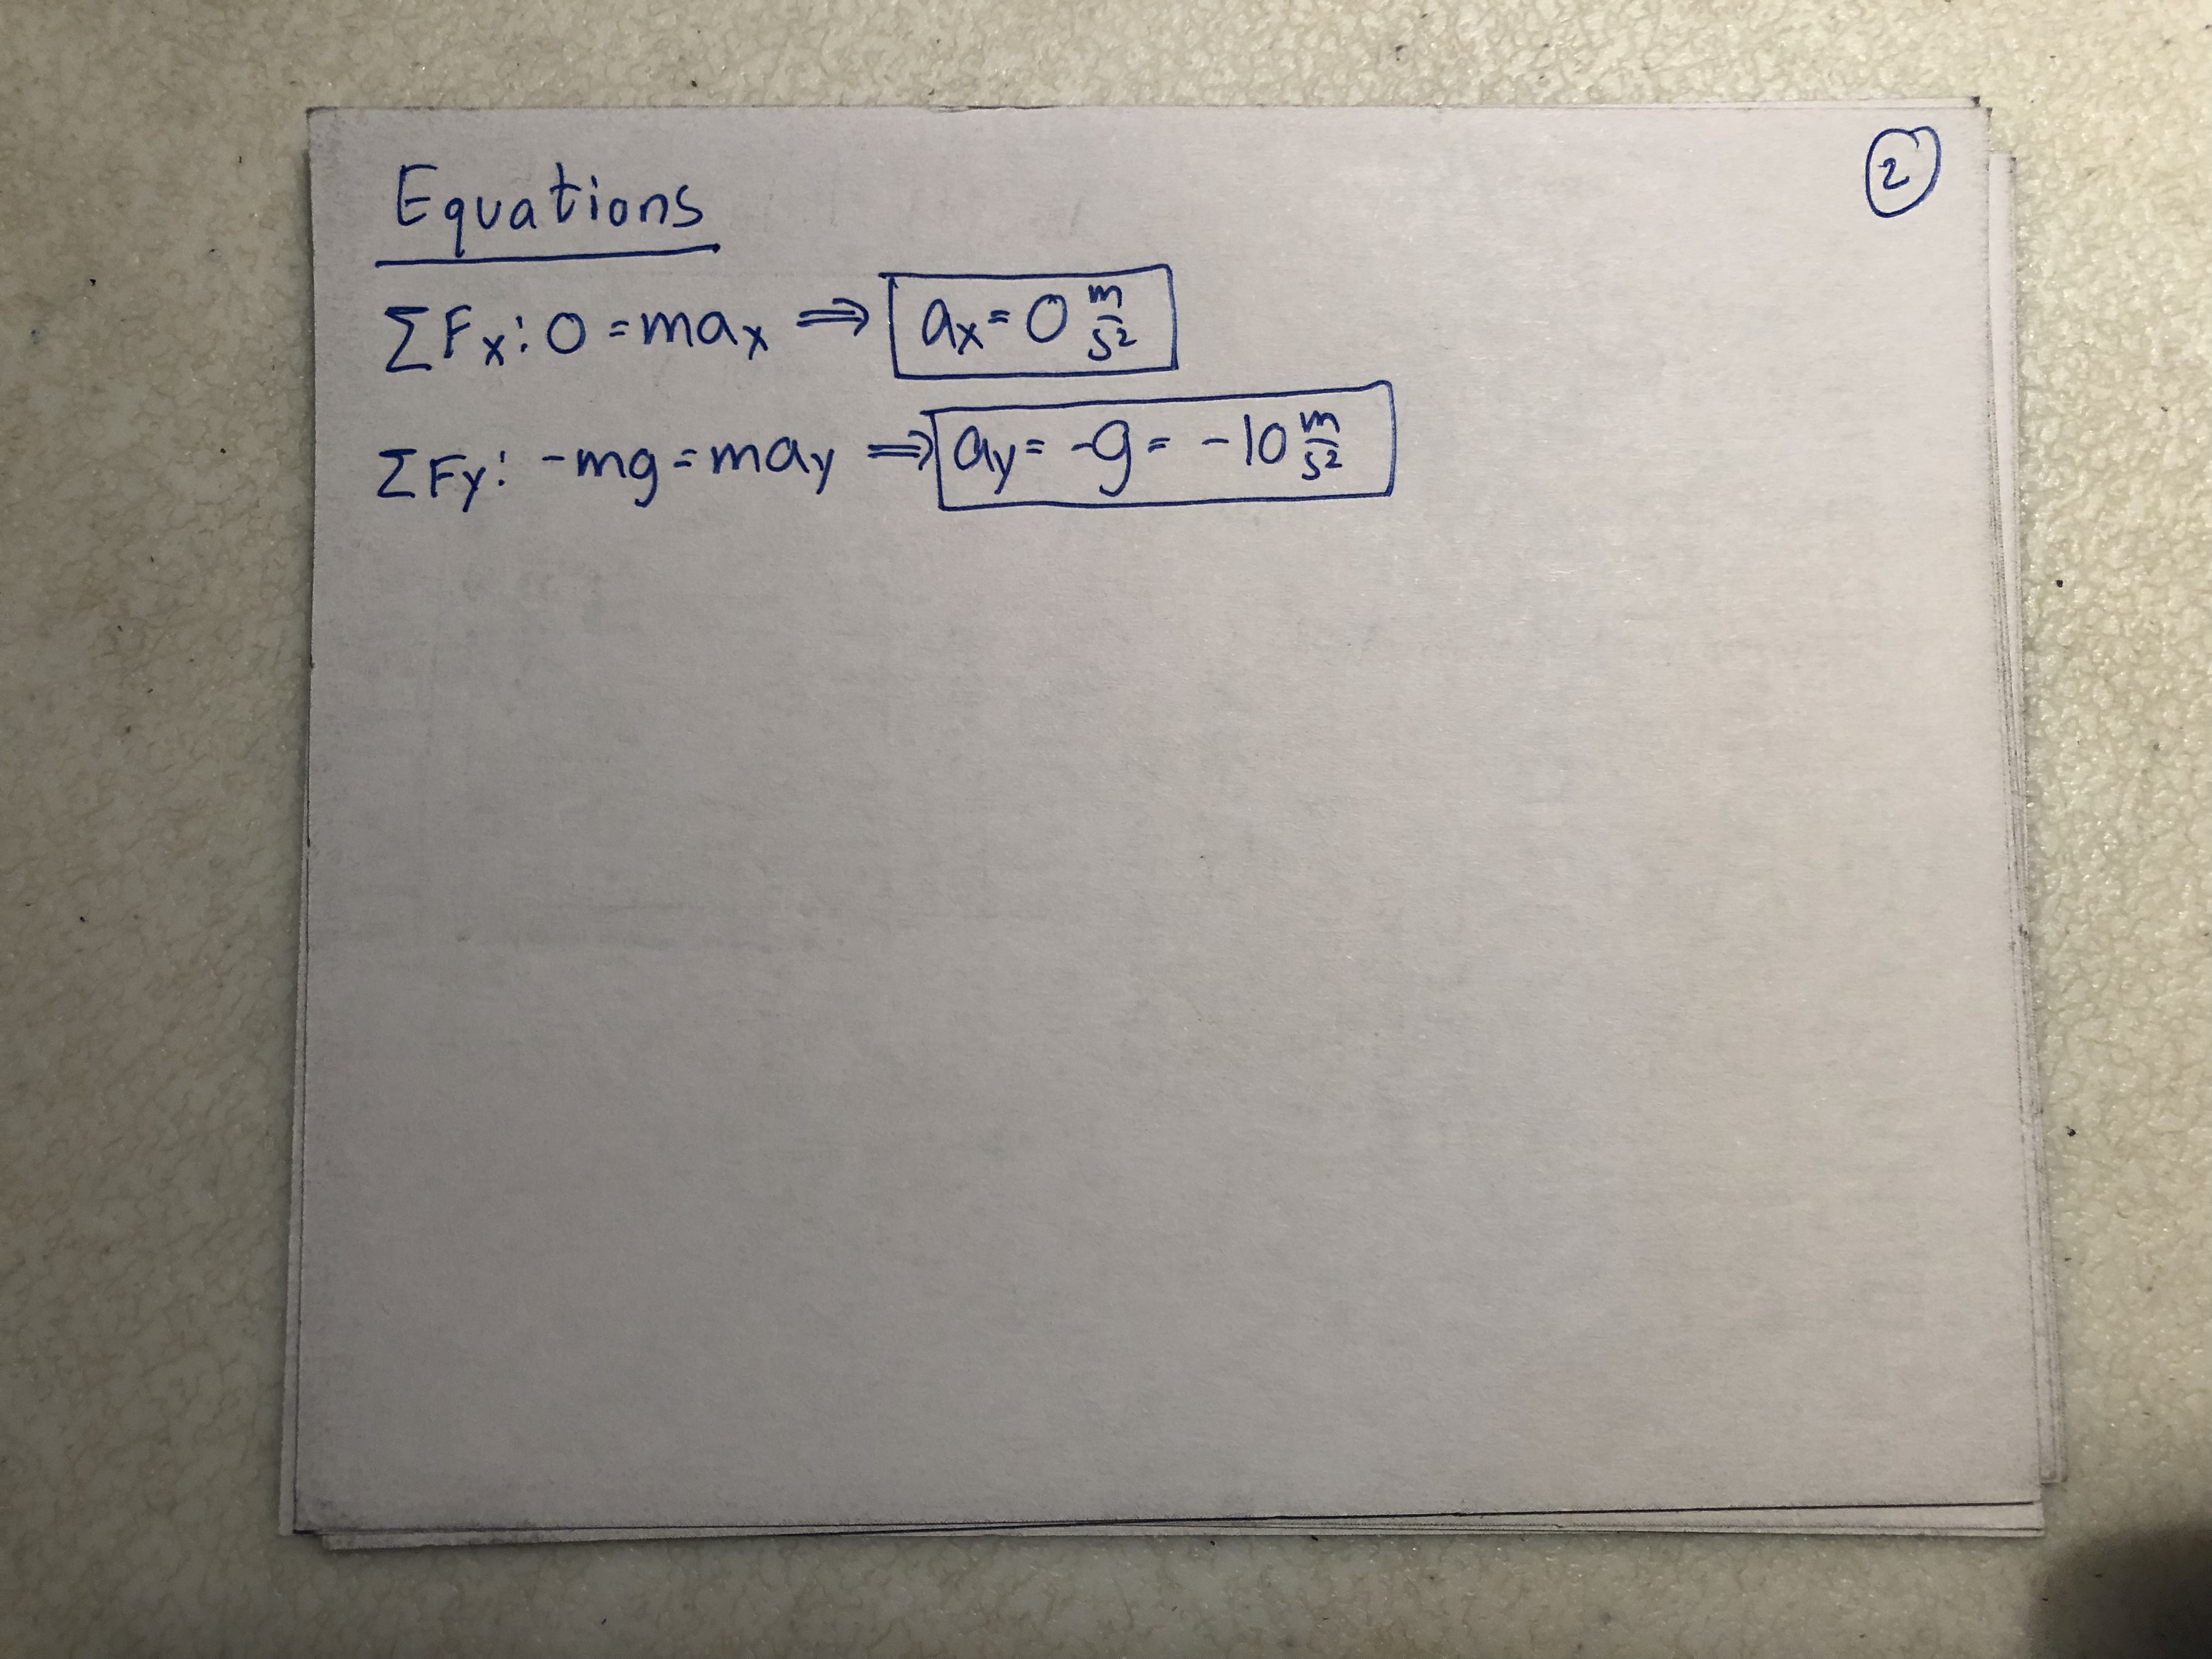 Equations
2
ΣFx: 0 = max ⟹ ax = 0 m/s²
ΣFy: -mg = may ⟹ ay = -g = -10 m/s²